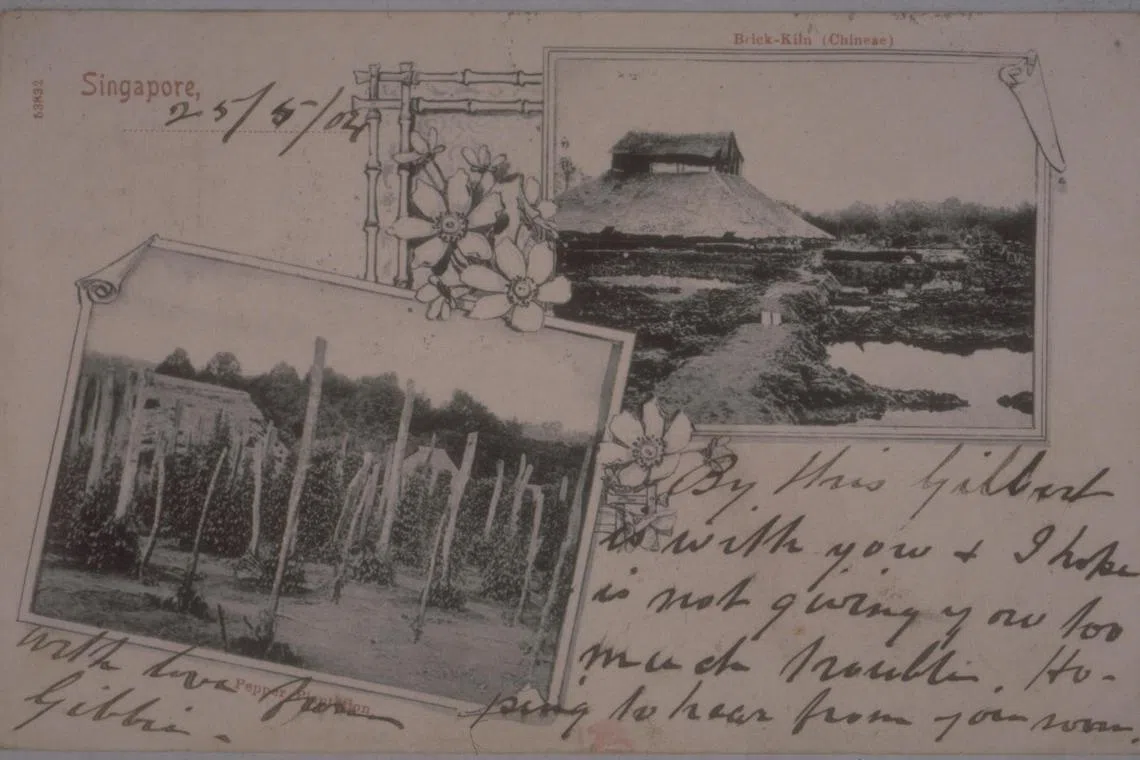 Brick-Kiln (Chinese)
53832
Singapore,
25/5/02
By this Gilbert
is with you & I hope
is not giving you too
much trouble. Ho-
ping to hear from you soon.
with love from
Gibbie.
Pepper Plantation